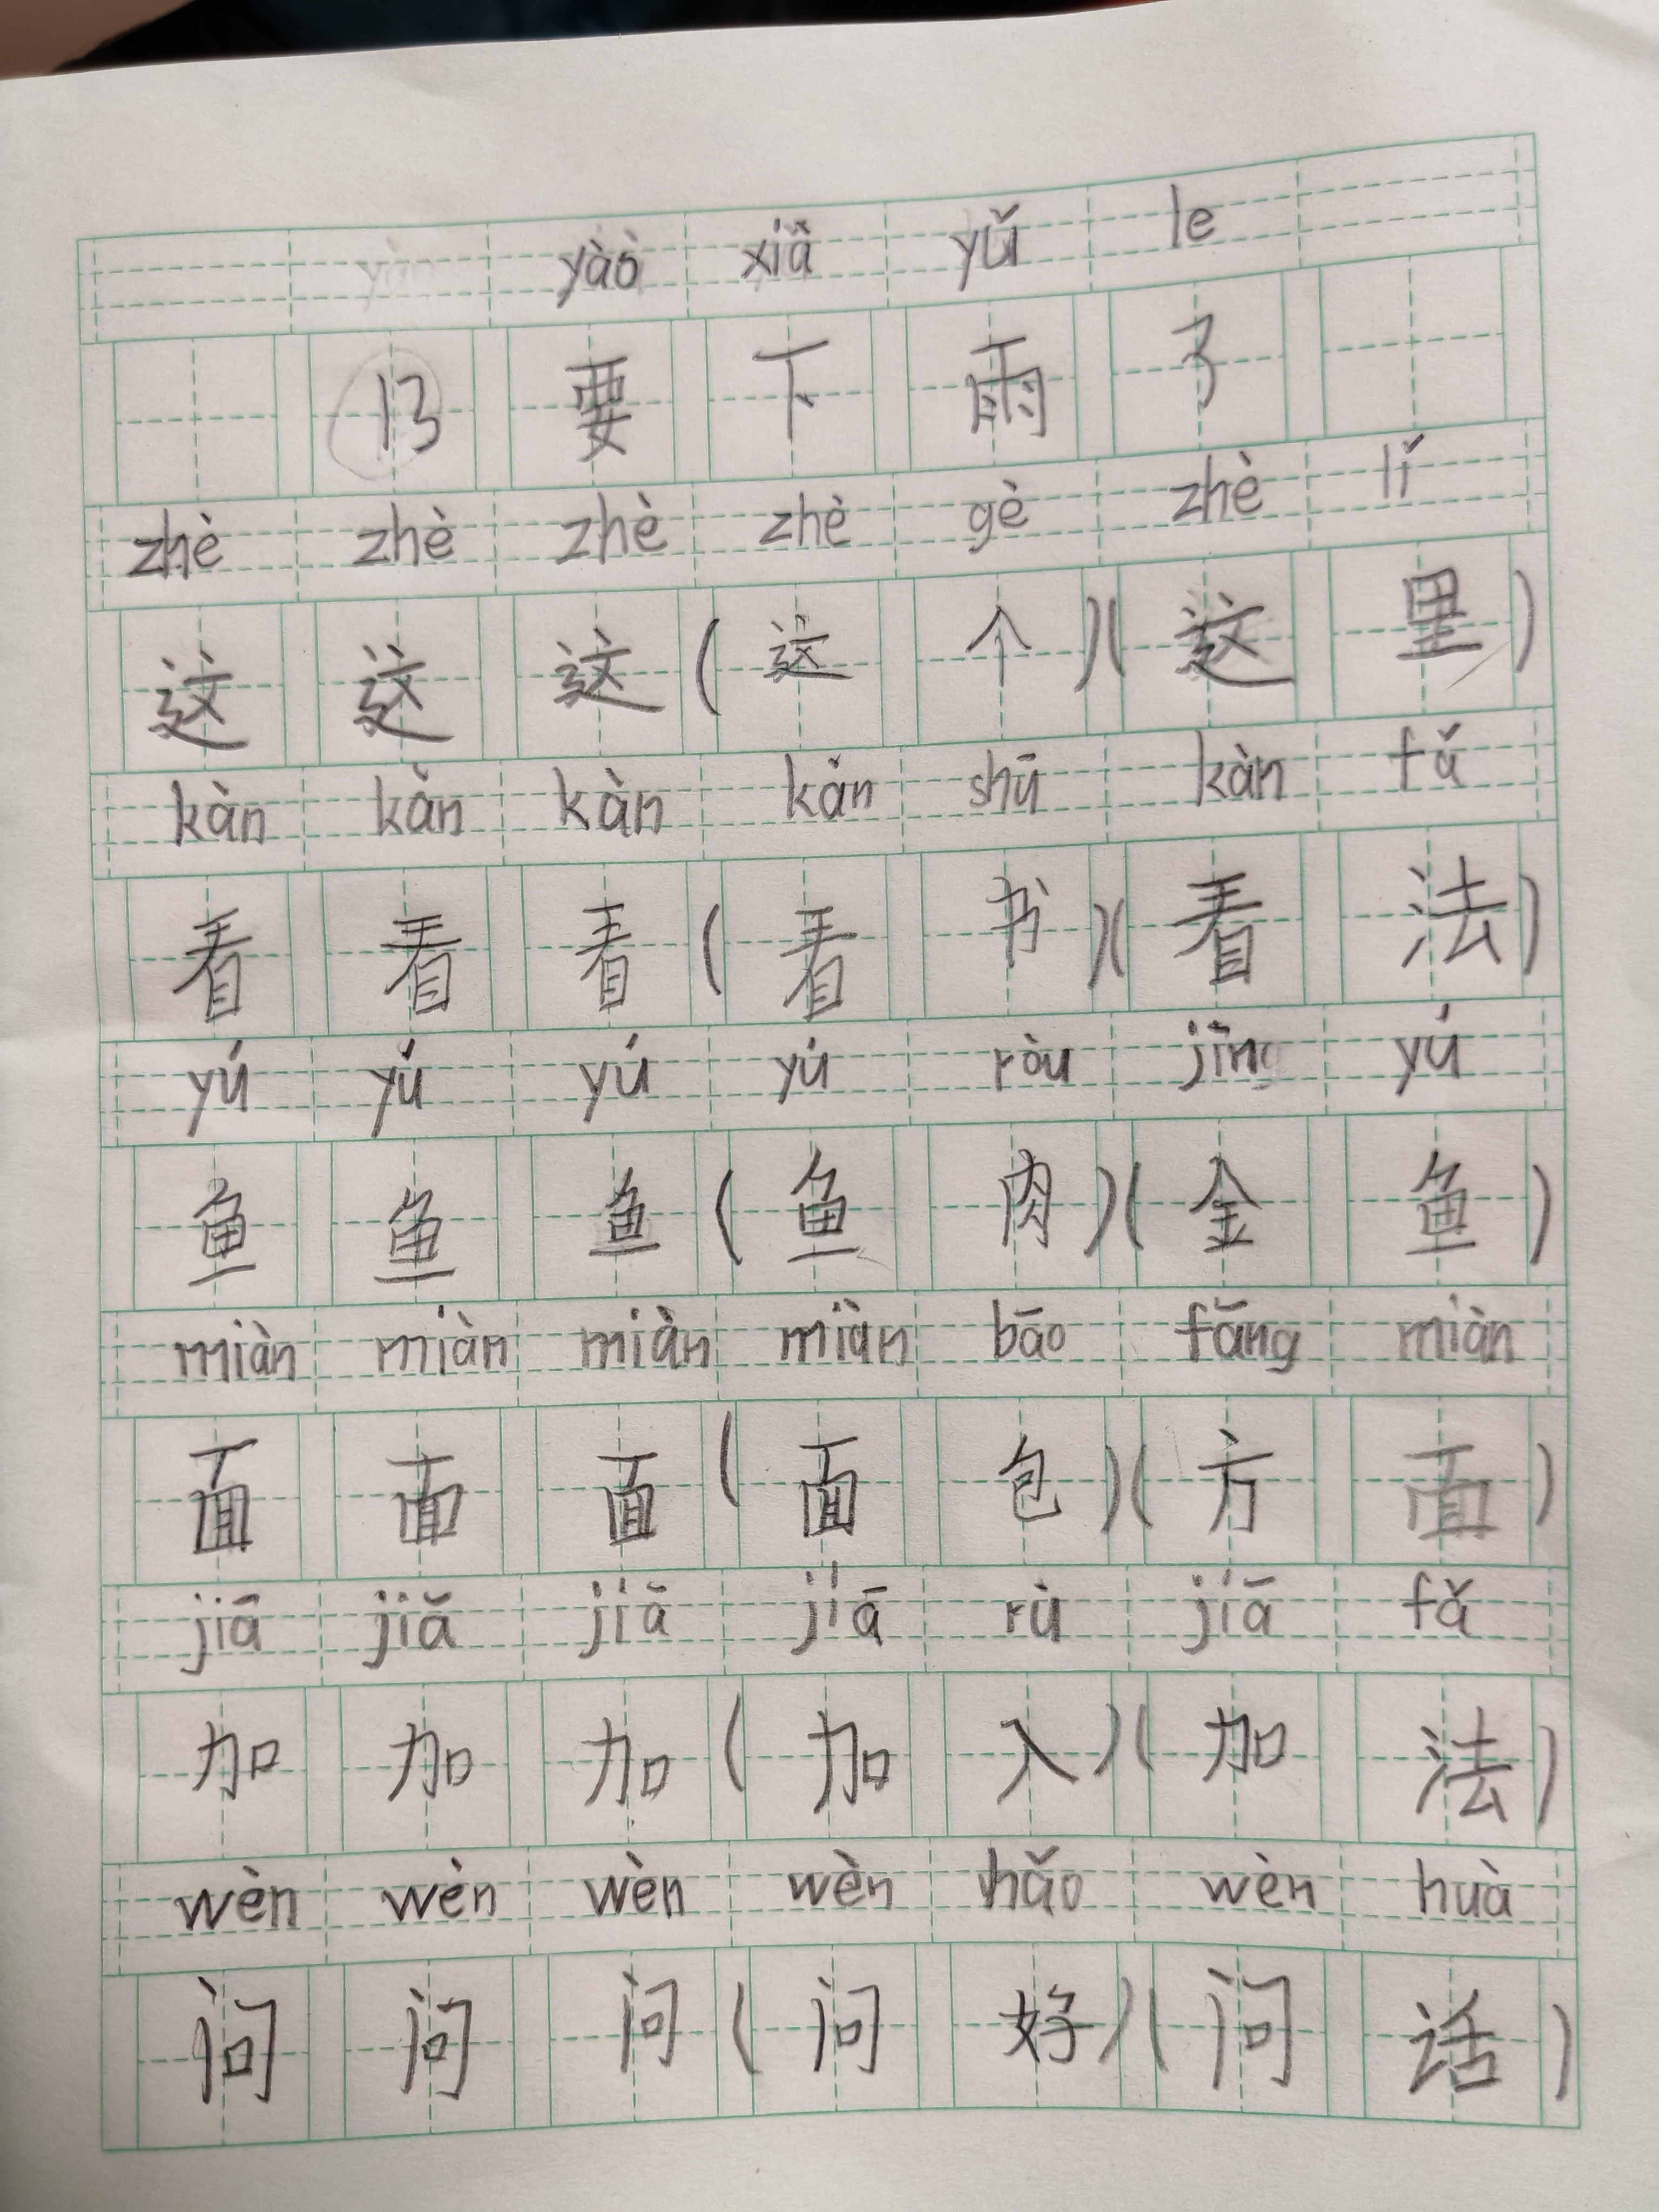 yào xià yǔ le
13 要下雨了
zhè zhè zhè zhè gè zhè lǐ
这 这 这 (这个)(这里)
kàn kàn kàn kàn shū kàn fǎ
看 看 看 (看书)(看法)
yú yú yú yú ròu jīng yú
鱼 鱼 鱼 (鱼肉)(金鱼)
miàn miàn miàn miàn bāo fāng miàn
面 面 面 (面包)(方面)
jiā jiā jiā jiā rù jiā fǎ
加 加 加 (加入)(加法)
wèn wèn wèn wèn hǎo wèn huà
问 问 问 (问好)(问话)